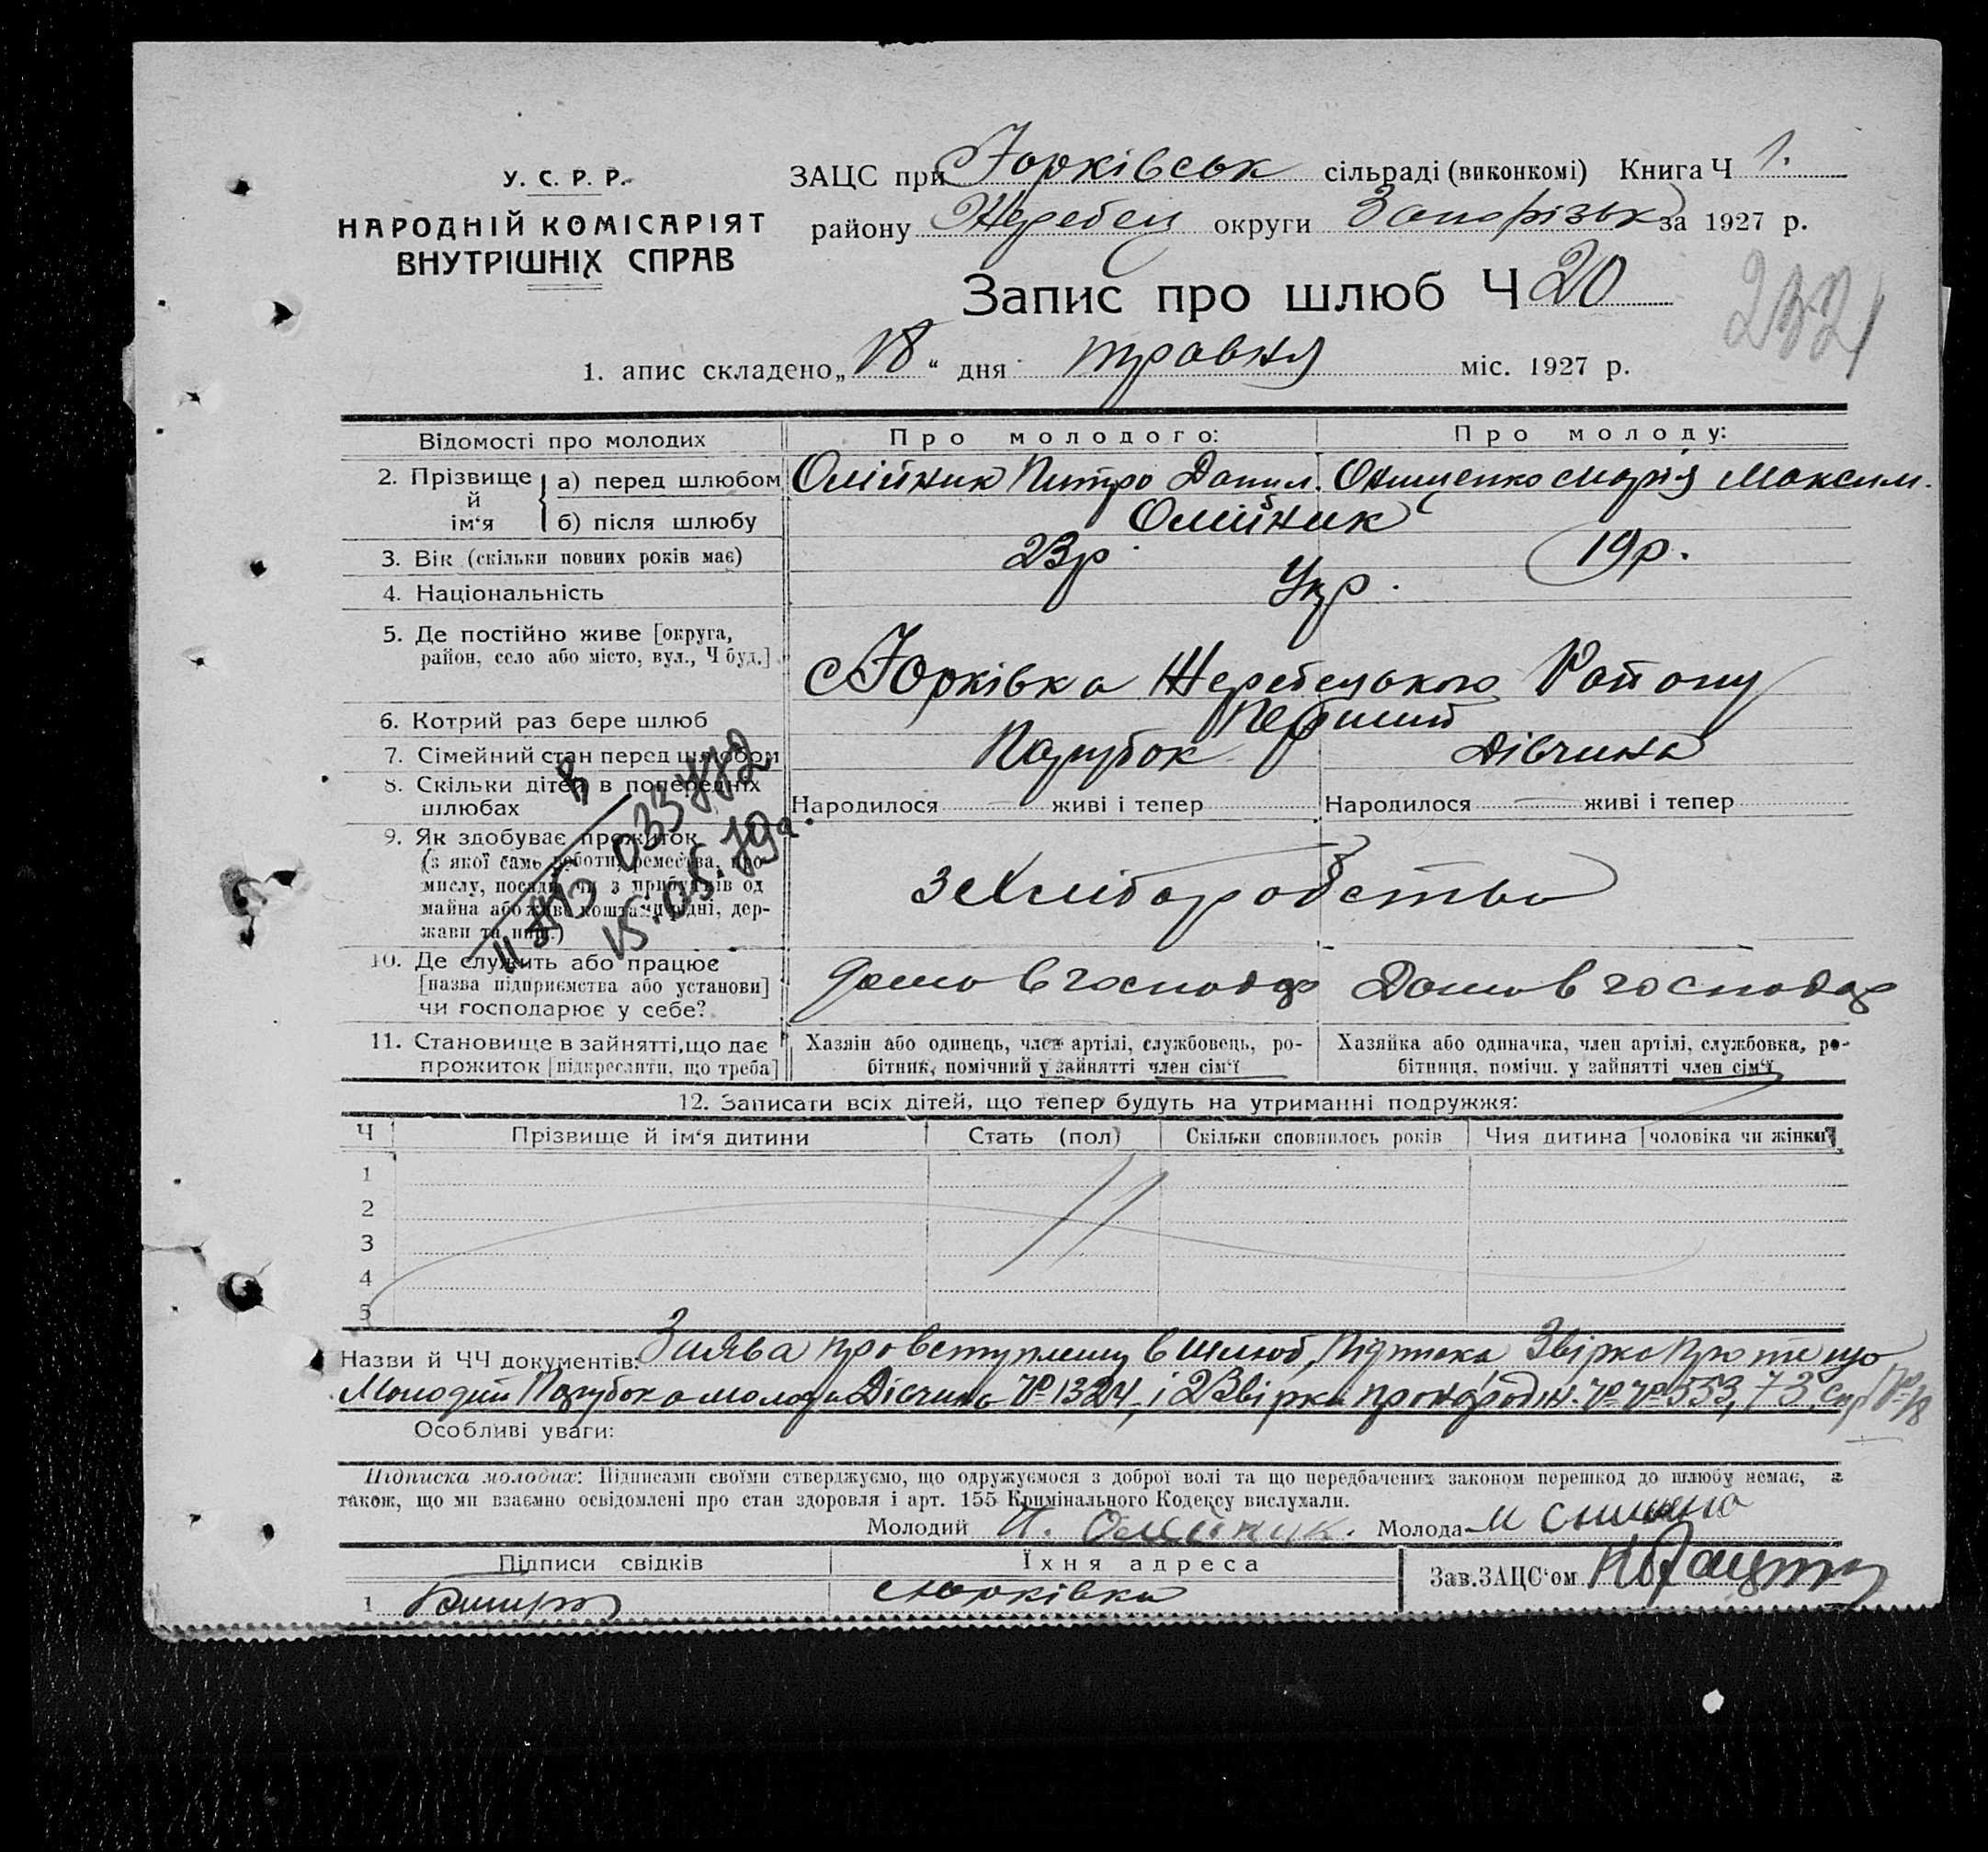 У. С. Р. Р.
НАРОДНІЙ КОМІСАРІЯТ
ВНУТРІШНІХ СПРАВ
ЗАЦС при Юрківськ сільраді (виконкомі) Книга Ч 1.
району Жеребец округи Запорізьк за 1927 р.
Запис про шлюб Ч 20
1. апис складено „18“ дня травня міс. 1927 р.
Відомості про молодих Про молодого: Про молоду:
2. Прізвище й ім‘я
а) перед шлюбом Олійник Питро Данил. Онищенко Марія Максим.
б) після шлюбу Олійник
3. Вік (скільки повних років має) 23р 19р.
4. Національність Укр.
5. Де постійно живе [округа,
район, село або місто, вул., Ч буд.]
Юрківка Жеребецького Району
6. Котрий раз бере шлюб Перший
7. Сімейний стан перед шлюбом Парубок Дівчина
8. Скільки дітей в попередніх
шлюбах Народилося — живі і тепер Народилося — живі і тепер
9. Як здобуває прожиток
(з якої саме роботи, ремества, про-
мислу, посади чи з прибутків од
майна або живе коштами рідні, дер-
жави та инш.)
з Хліборобства
033772
15.05.79
10. Де служить або працює
[назва підприємства або установи]
чи господарює у себе?
дома в господар Дома в господар
11. Становище в зайнятті, що дає
прожиток [підкреслити, що треба]
Хазяін або одинець, член артілі, службовець, ро-
бітник, помічний у зайнятті член сім‘ї
Хазяйка або одиначка, член артілі, службовка, ро-
бітниця, помічн. у зайнятті член сім‘ї
12. Записати всіх дітей, що тепер будуть на утриманні подружжя:
Ч Прізвище й ім‘я дитини Стать (пол) Скільки сповнилось років Чия дитина [чоловіка чи жінки]
1
2
3
4
5
Назви й ЧЧ документів: Заява про вступлену в шлюб, Підписка Звірка про те що
Молодий Парубок а молода Дівчина № 1324, і 2 Звірки про народж. №№ 553, 73
Особливі уваги:
Підписка молодих: Підписами своїми стверджуємо, що одружуємося з доброї волі та що передбачених законом перешкод до шлюбу немає, а
також, що ми взаємно освідомлені про стан здоровля і арт. 155 Кримінального Кодексу вислухали.
Молодий П. Олійник. Молода М
Підписи свідків Їхня адреса Зав. ЗАЦС‘ом
1 Юрківка